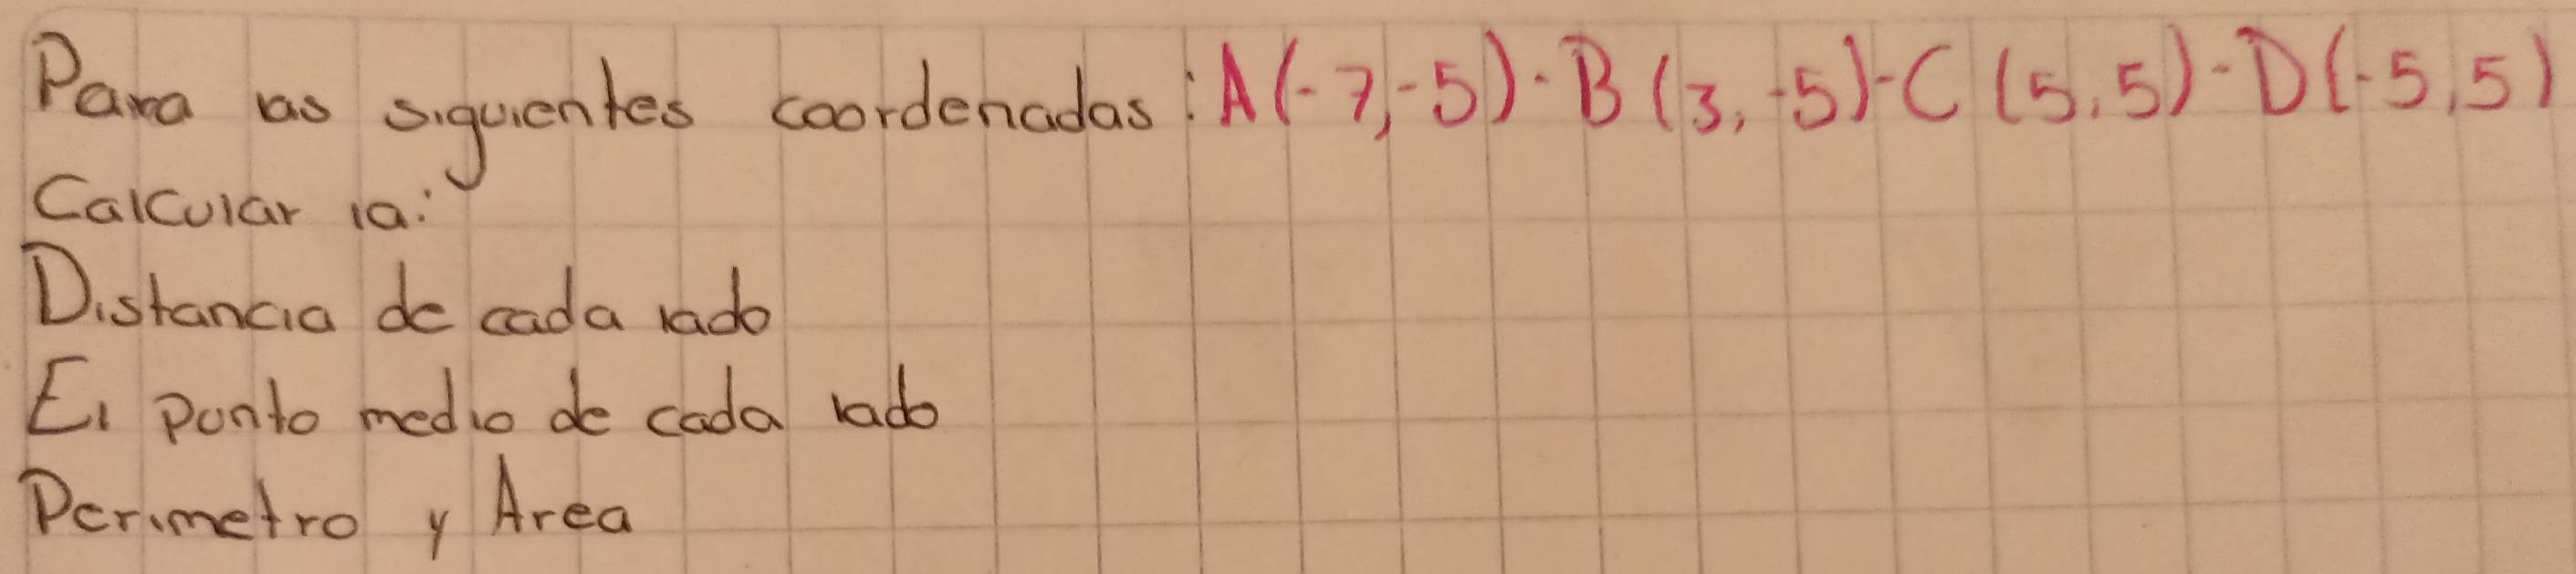 Para las siguientes coordenadas: A(-7,-5)-B(3,-5)-C(5,5)-D(-5,5)
Calcular la:
Distancia de cada lado
El punto medio de cada lado
Perimetro y Area